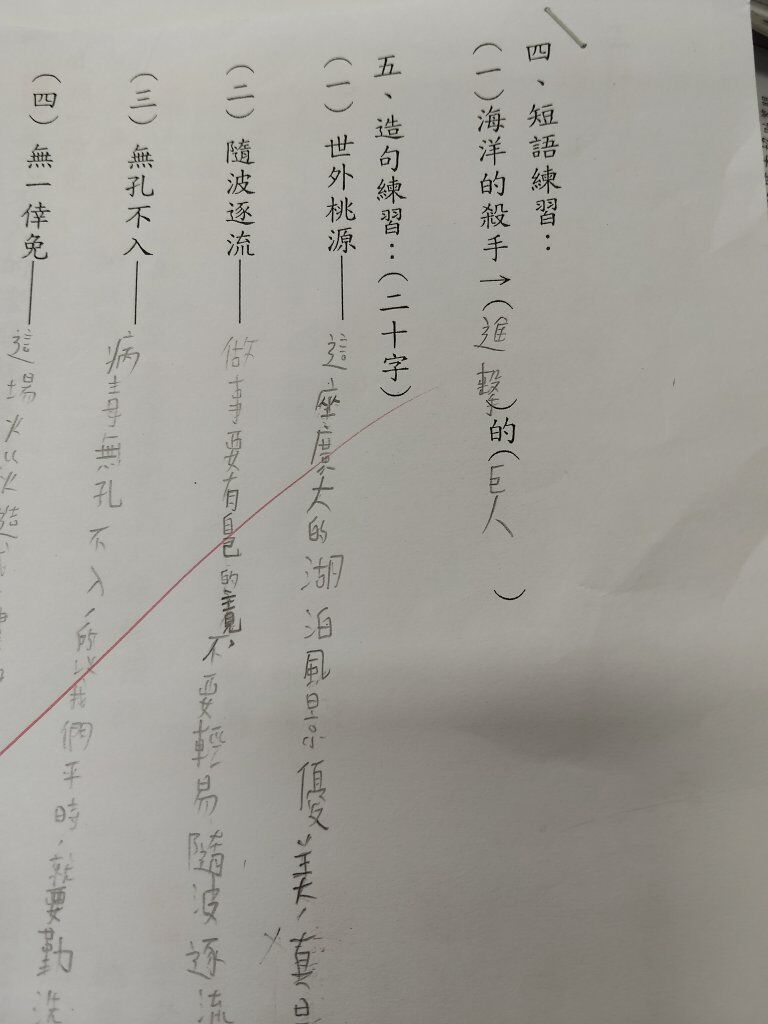 四、短語練習：
（一）海洋的殺手→（進擊）的（巨人）
五、造句練習：（二十字）
（一）世外桃源——這座廣大的湖泊風景優美，真是
（二）隨波逐流——做事要有自己的主見，不要輕易隨波逐流
（三）無孔不入——病毒無孔不入，所以我們平時，就要勤洗
（四）無一倖免——這場火災造成